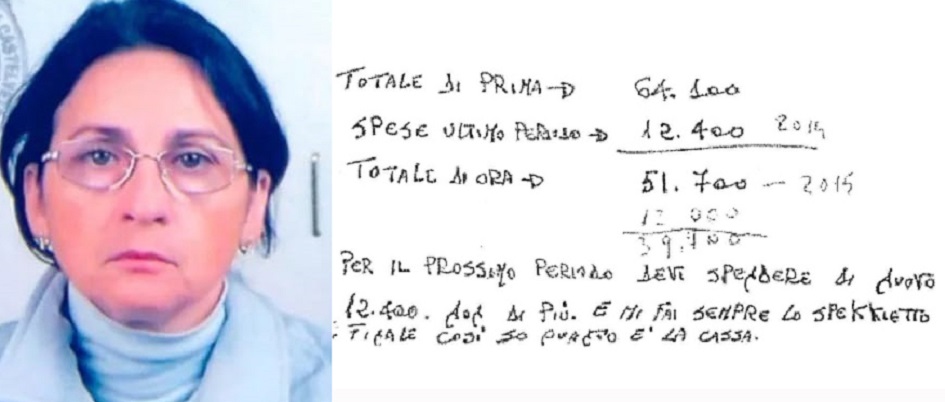 CASTELV
TOTALE DI PRIMA → 64.100
SPESE ULTIMO PERIODO → 12.400 2014
TOTALE DI ORA → 51.700 — 2015
12 000
39.700
PER IL PROSSIMO PERIODO DEVI SPENDERE DI NUOVO
12.400. NON DI PIÙ. E MI FAI SEMPRE LO SPEKKIETTO
FINALE COSÌ SO QUANTO E' LA CASSA.